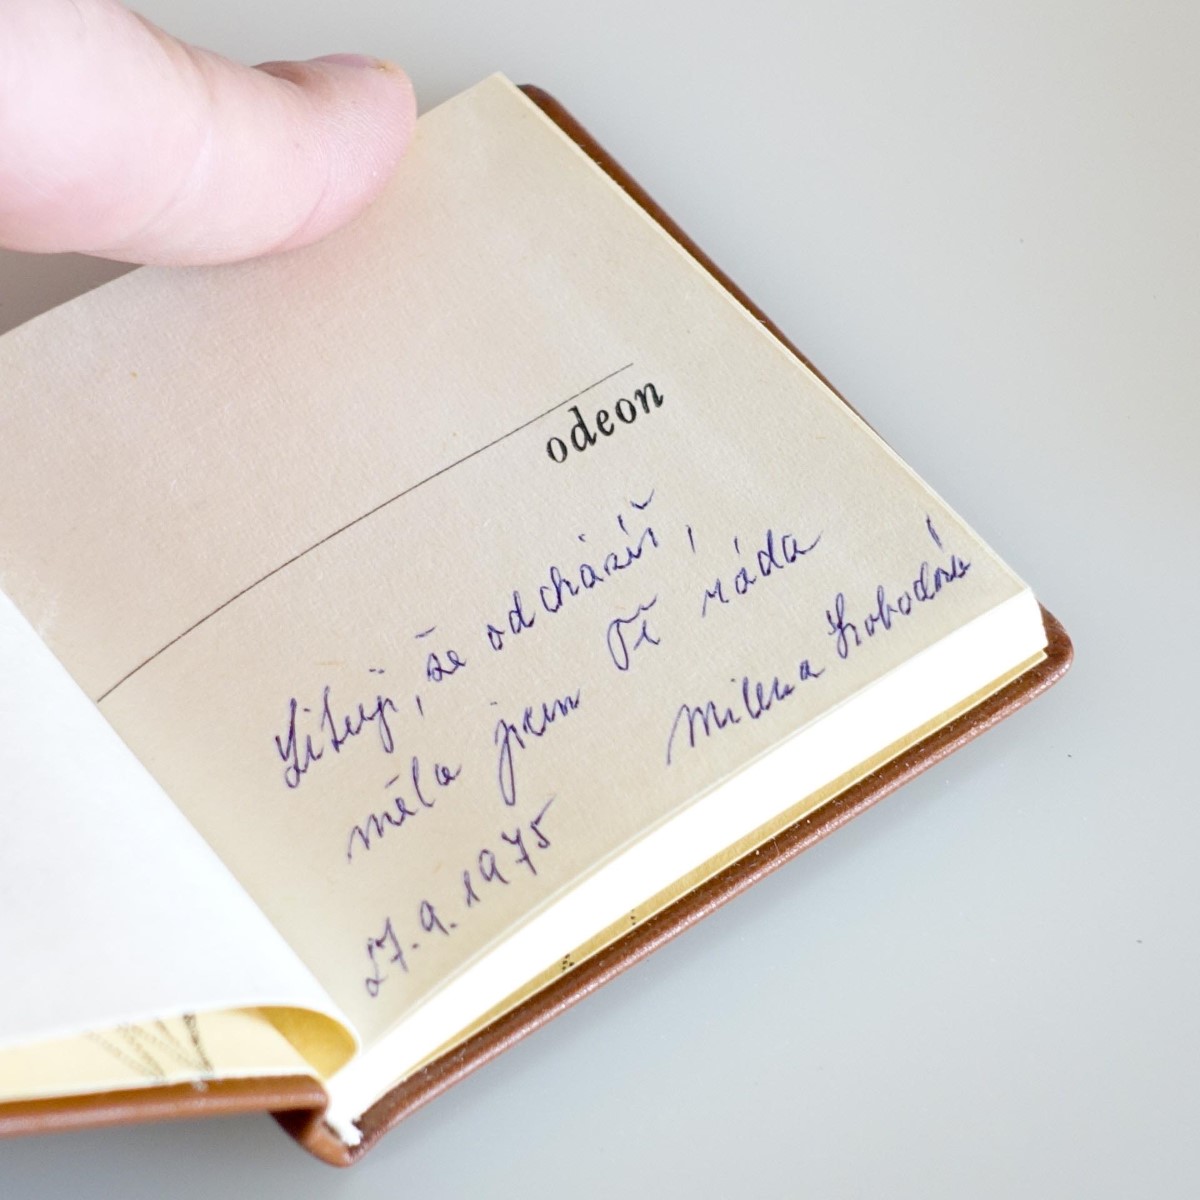 odeon
Lituji, že odcházíš,
měla jsem Tě ráda
Milena Svobodová
27. 9. 1975